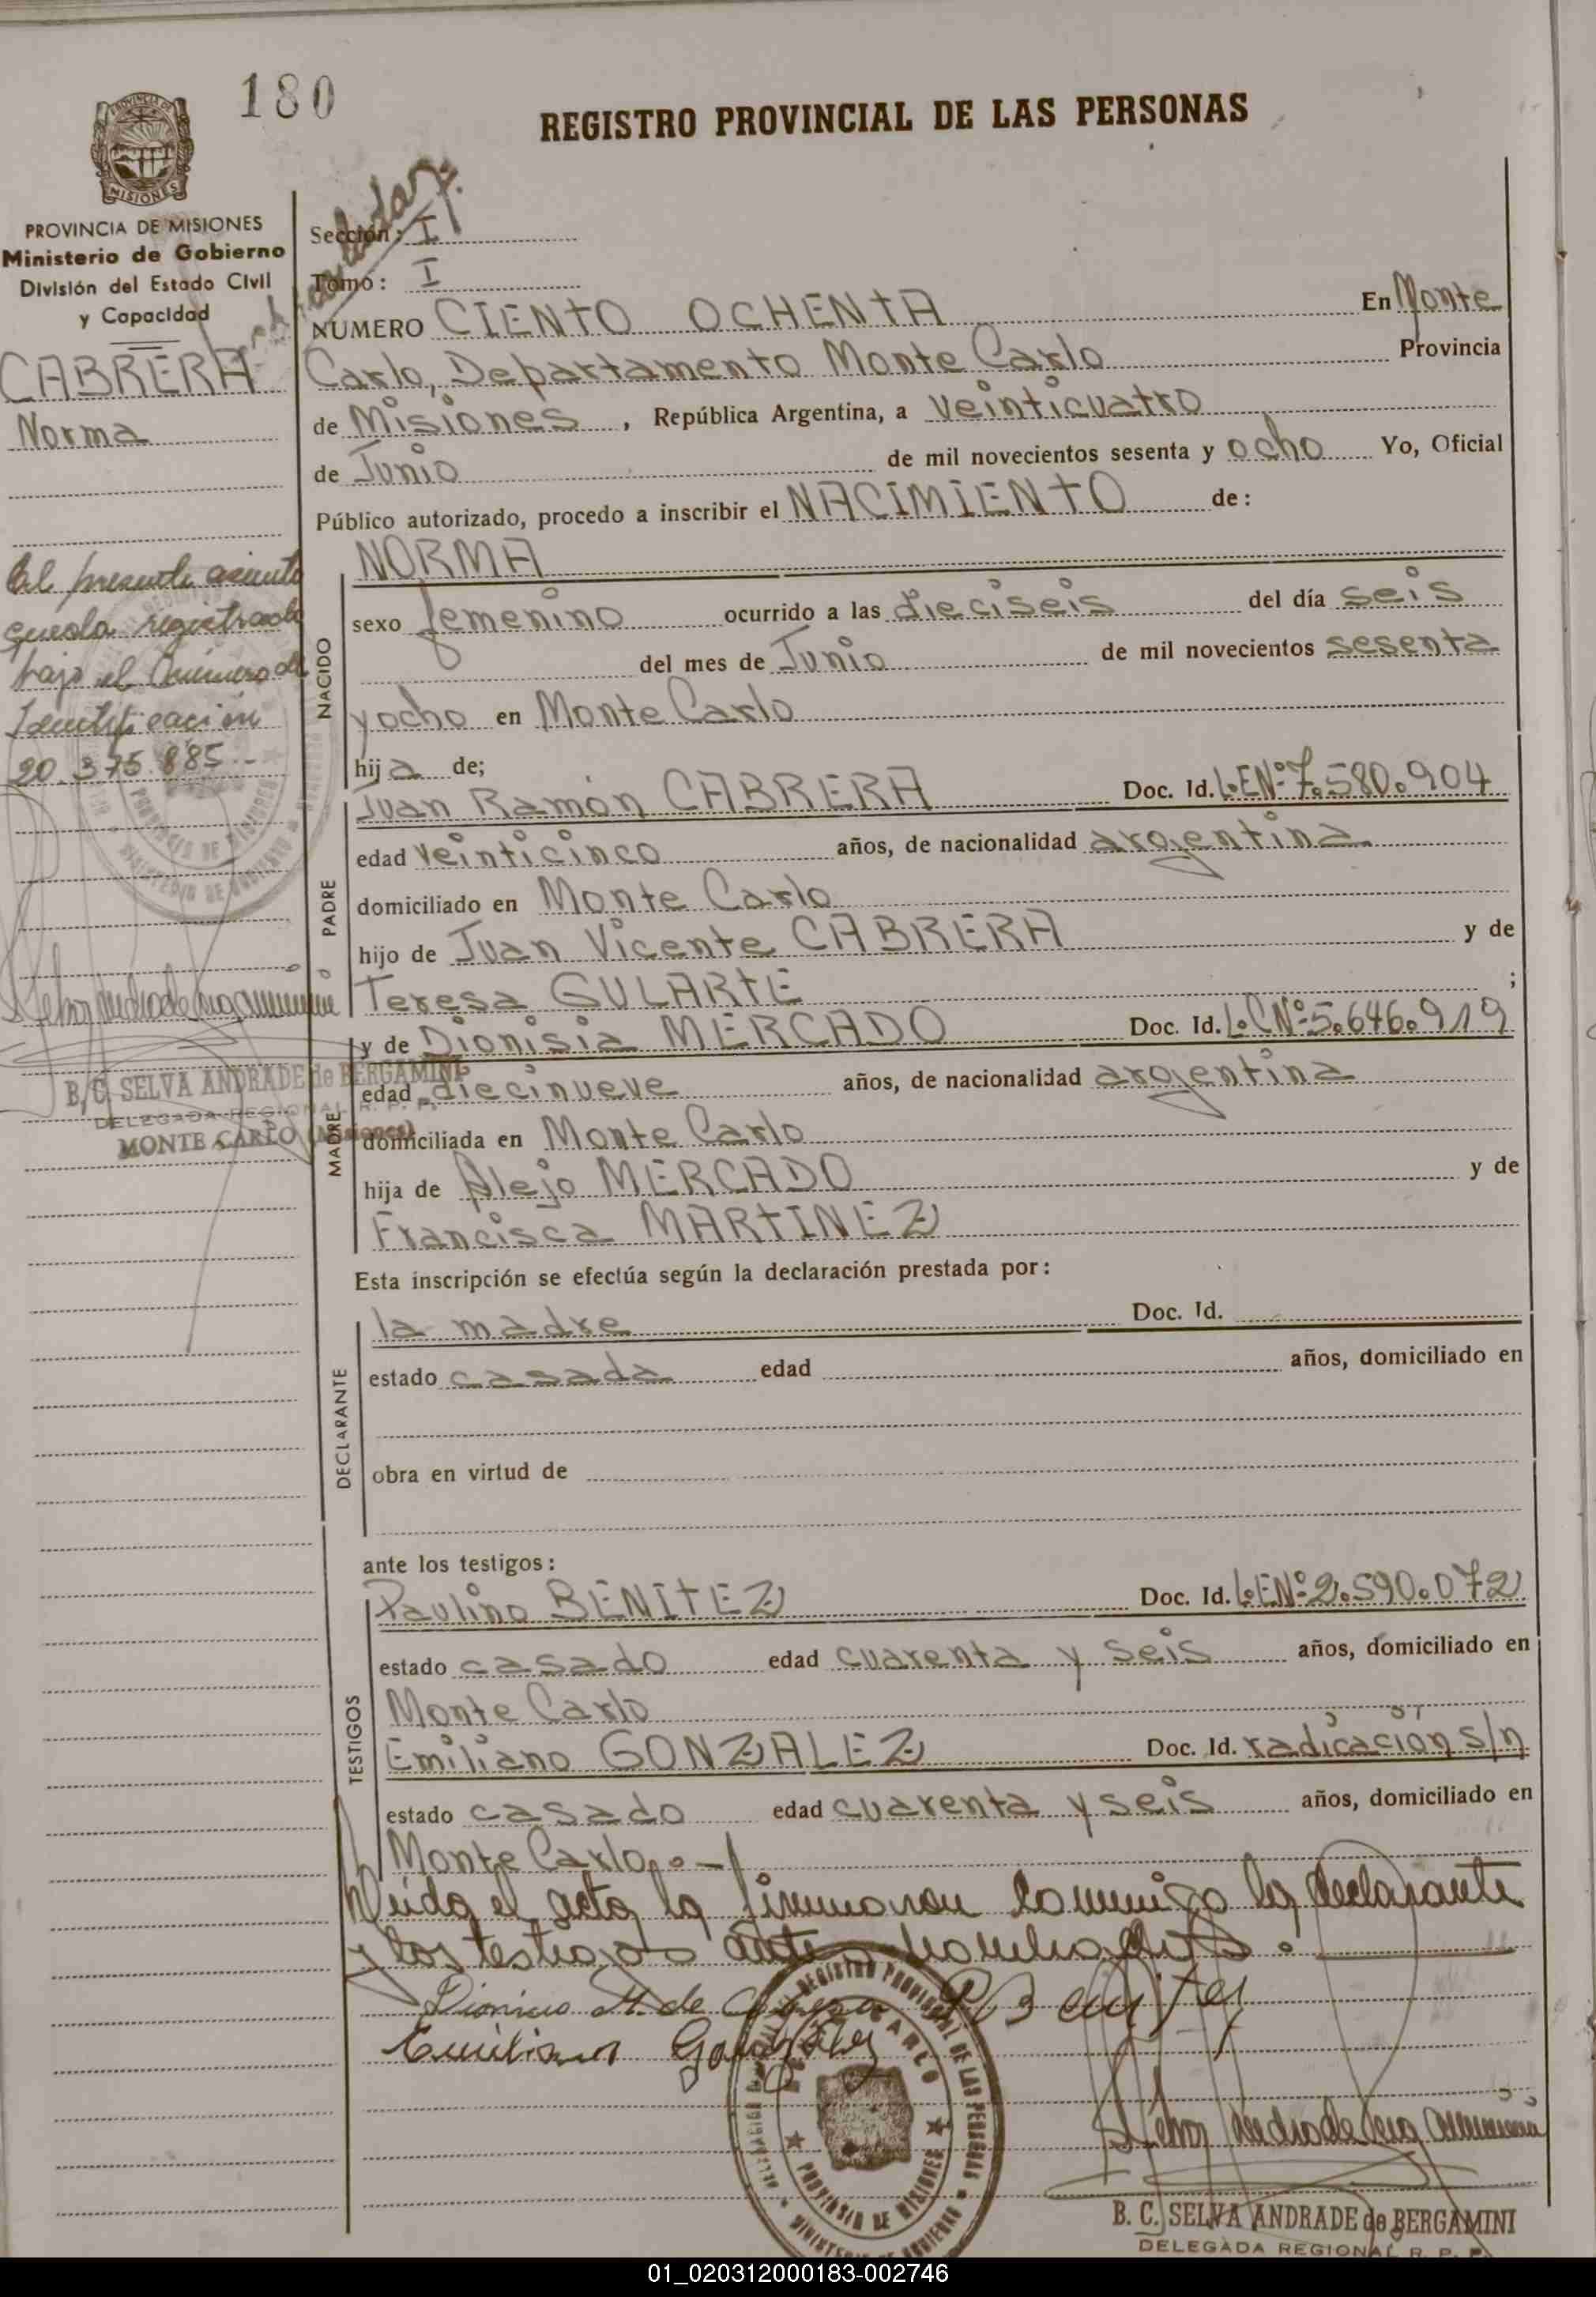 180
REGISTRO PROVINCIAL DE LAS PERSONAS
PROVINCIA DE MISIONES
Ministerio de Gobierno
División del Estado Civil
y Capacidad
CABRERA
Norma
El presente asiento
queda registrado
bajo el Número de
Identificación
20.375.885.-
B. C. SELVA ANDRADE de BERGAMINI
DELEGADA REGIONAL R. P. P.
MONTE CARLO (Misiones)
Sección: I
Tomo: I
NUMERO CIENTO OCHENTA En Monte
Carlo, Departamento Monte Carlo Provincia
de Misiones, República Argentina, a veinticuatro
de Junio de mil novecientos sesenta y ocho Yo, Oficial
Público autorizado, procedo a inscribir el NACIMIENTO de:
NACIDO
NORMA
sexo femenino ocurrido a las dieciseis del día seis
del mes de Junio de mil novecientos sesenta
y ocho en Monte Carlo
hija de;
PADRE
Juan Ramón CABRERA Doc. Id. L.E.Nº 7.580.904
edad veinticinco años, de nacionalidad argentina
domiciliado en Monte Carlo
hijo de Juan Vicente CABRERA y de
Teresa GULARTE ;
MADRE
y de Dionisia MERCADO Doc. Id. L.C.Nº 5.646.919
edad diecinueve años, de nacionalidad argentina
domiciliada en Monte Carlo
hija de Alejo MERCADO y de
Francisca MARTINEZ
Esta inscripción se efectúa según la declaración prestada por:
DECLARANTE
la madre Doc. Id.
estado casada edad años, domiciliado en
obra en virtud de
ante los testigos:
TESTIGOS
Paulino BENITEZ Doc. Id. L.E.Nº 2.590.072
estado casado edad cuarenta y seis años, domiciliado en
Monte Carlo
Emiliano GONZALEZ Doc. Id. radicación s/n
estado casado edad cuarenta y seis años, domiciliado en
Monte Carlo.-
leída el acta la firmaron conmigo la declarante
y los testigos antes nombrados.
P Benitez
Emiliano Gonzalez
REGISTRO PROVINCIAL DE LAS PERSONAS
PROVINCIA DE MISIONES
MINISTERIO DE GOBIERNO
B. C. SELVA ANDRADE de BERGAMINI
DELEGADA REGIONAL R. P. P.
01_020312000183-002746